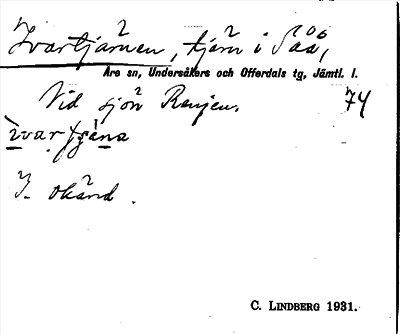 Ivartjärnen, tjärn i Såå,
Åre sn, Undersåkers och Offerdals tg, Jämtl. l.
Vid sjön Renjen. 74
ìvartjä̀na
I. okänd.
C. LINDBERG 1931.